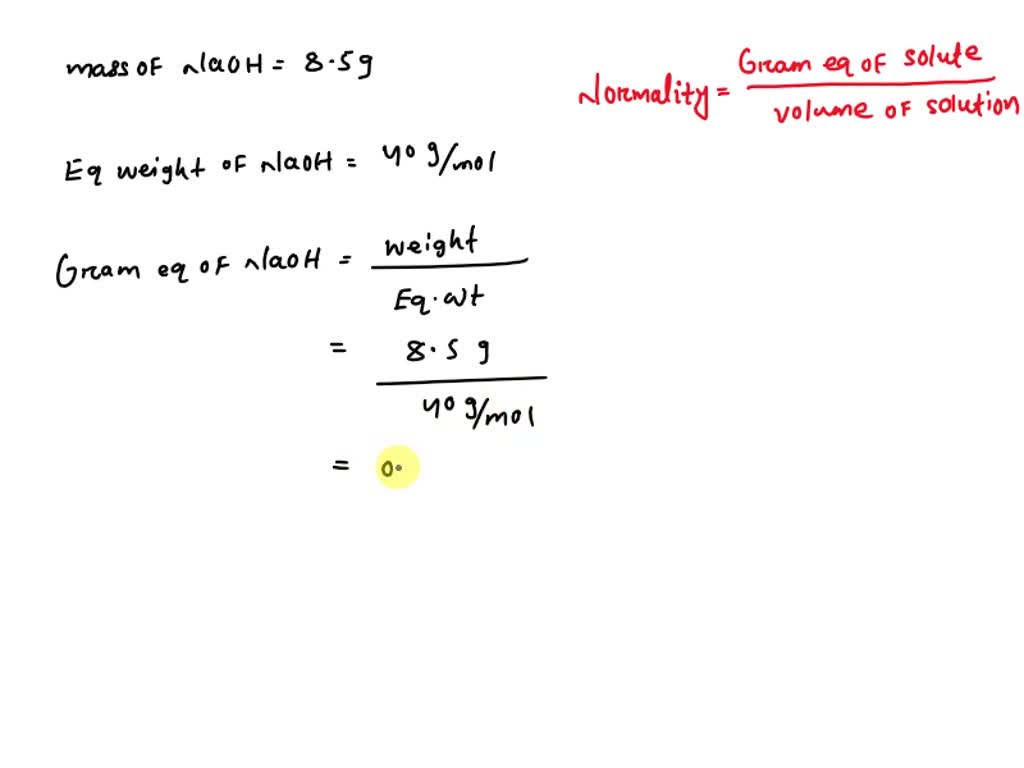 mass of NaOH = 8.5g
Normality = Gram eq of solute
volume of solution
Eq weight of NaOH = 40 g/mol
Gram eq of NaOH = weight
Eq. wt
= 8.5 g
40 g/mol
= 0.